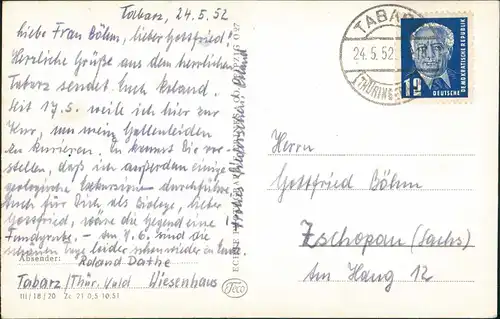 Tabarz, 24.5.52
Liebe Frau Böhm, lieber Gottfried!
Herzliche Grüße aus dem herrlichen
Tabarz sendet Euch Roland.
Seit 17.5. weile ich hier zur
Kur, um mein Gallenleiden
zu kurieren. Du kannst Dir vor-
stellen, daß ich außerdem einige
geologische Exkursionen durchführe.
Auch für Dich als Biologe, lieber
Gottfried, wäre die Gegend eine
Fundgrube. - am 7.6. sind die
schönen Tage leider schon wieder zu Ende.
Frohes Wiedersehen
Absender: Roland Dathe
Tabarz/Thür. Wald Wiesenhaus
III/18/20 Zr. 21 0,5 10.51
ECHTE
Teco
TABARZ
24.5.52.
THÜRING
DEUTSCHE
DEMOKRATISCHE REPUBLIK
12
Herrn
Gottfried Böhm
Zschopau (Sachs)
Am Hang 12